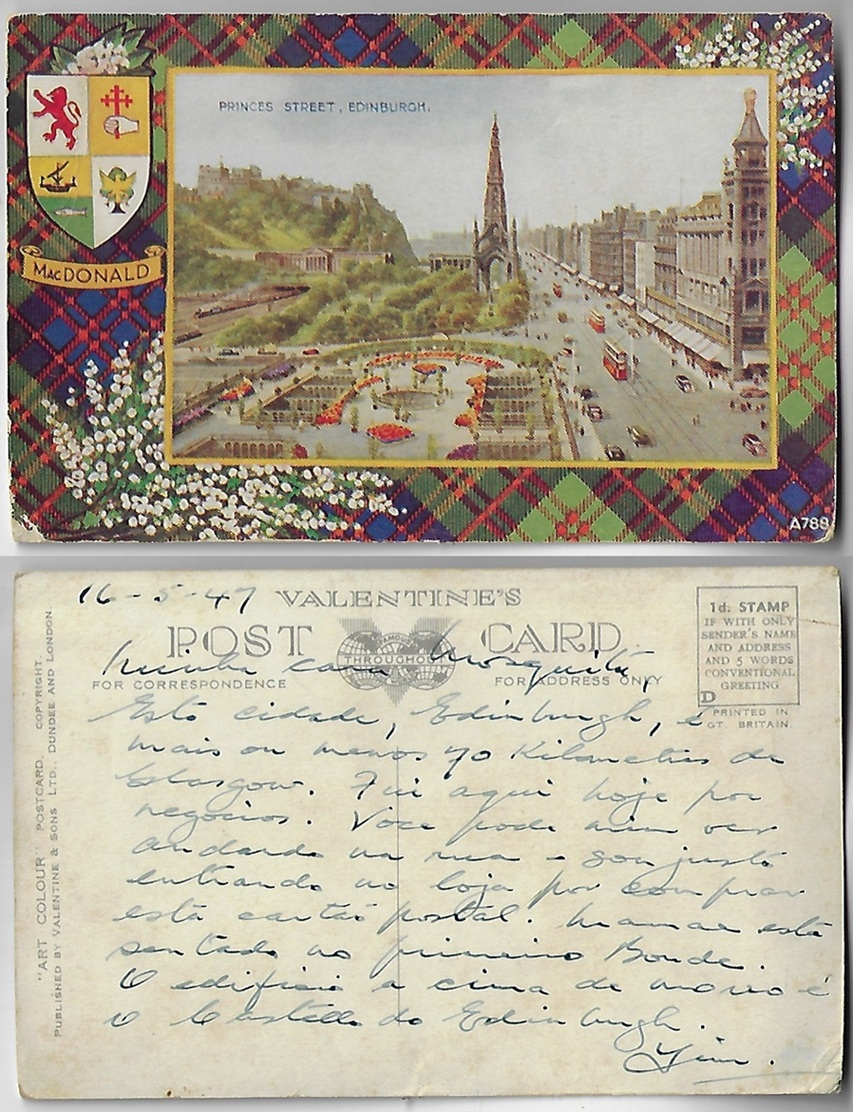 PRINCES STREET, EDINBURGH.
MACDONALD
A788
16-5-47
VALENTINE'S
POST CARD
FAMOUS
THROUGHOUT
FOR CORRESPONDENCE
FOR ADDRESS ONLY
1d. STAMP
IF WITH ONLY
SENDER'S NAME
AND ADDRESS
AND 5 WORDS
CONVENTIONAL
GREETING
D
PRINTED IN
GT. BRITAIN.
"ART COLOUR" POSTCARD. COPYRIGHT.
PUBLISHED BY VALENTINE & SONS LTD., DUNDEE AND LONDON.
Minha cara Mosquito,
Esta cidade, Edinburgh, é
mais ou menos 70 Kilometros de
Glasgow. Fui aqui hoje por
negocios. Voce pode mim ver
andando na rua e sou justo
entrando no loja por comprar
esta cartão postal. Mamae está
sentado no primeiro Bonde.
O edificio a cima de morro é
o Castello do Edinburgh.
Jim.